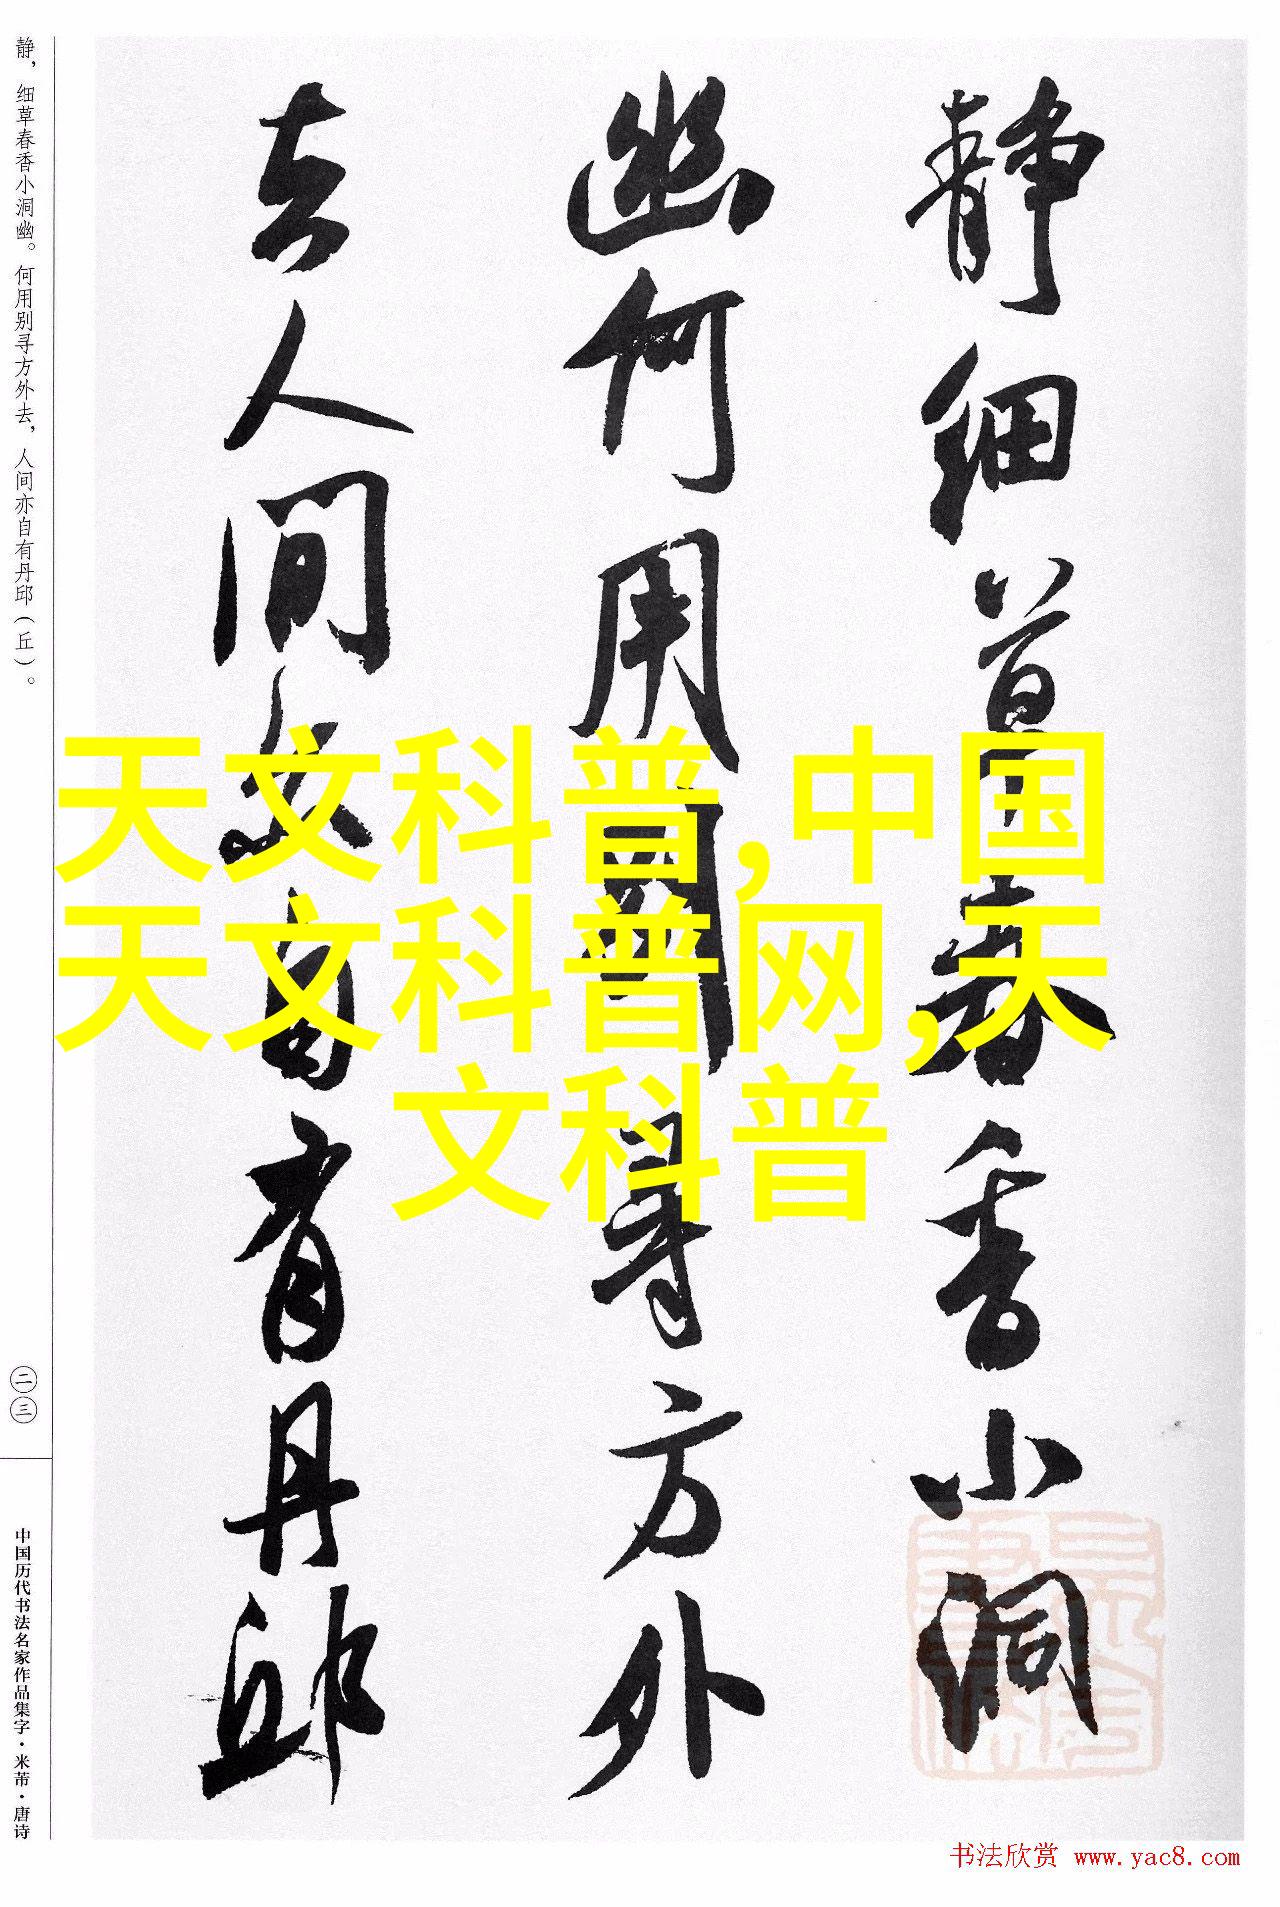 静细草春香小洞
幽何用别寻方外
去人间亦自有丹邱
静，细草春香小洞幽。何用别寻方外去，人间亦自有丹邱（丘）。
二三
中国历代书法名家作品集字·米芾·唐诗
天文科普,中国
天文科普网,天
文科普
书法欣赏 www.yac8.com